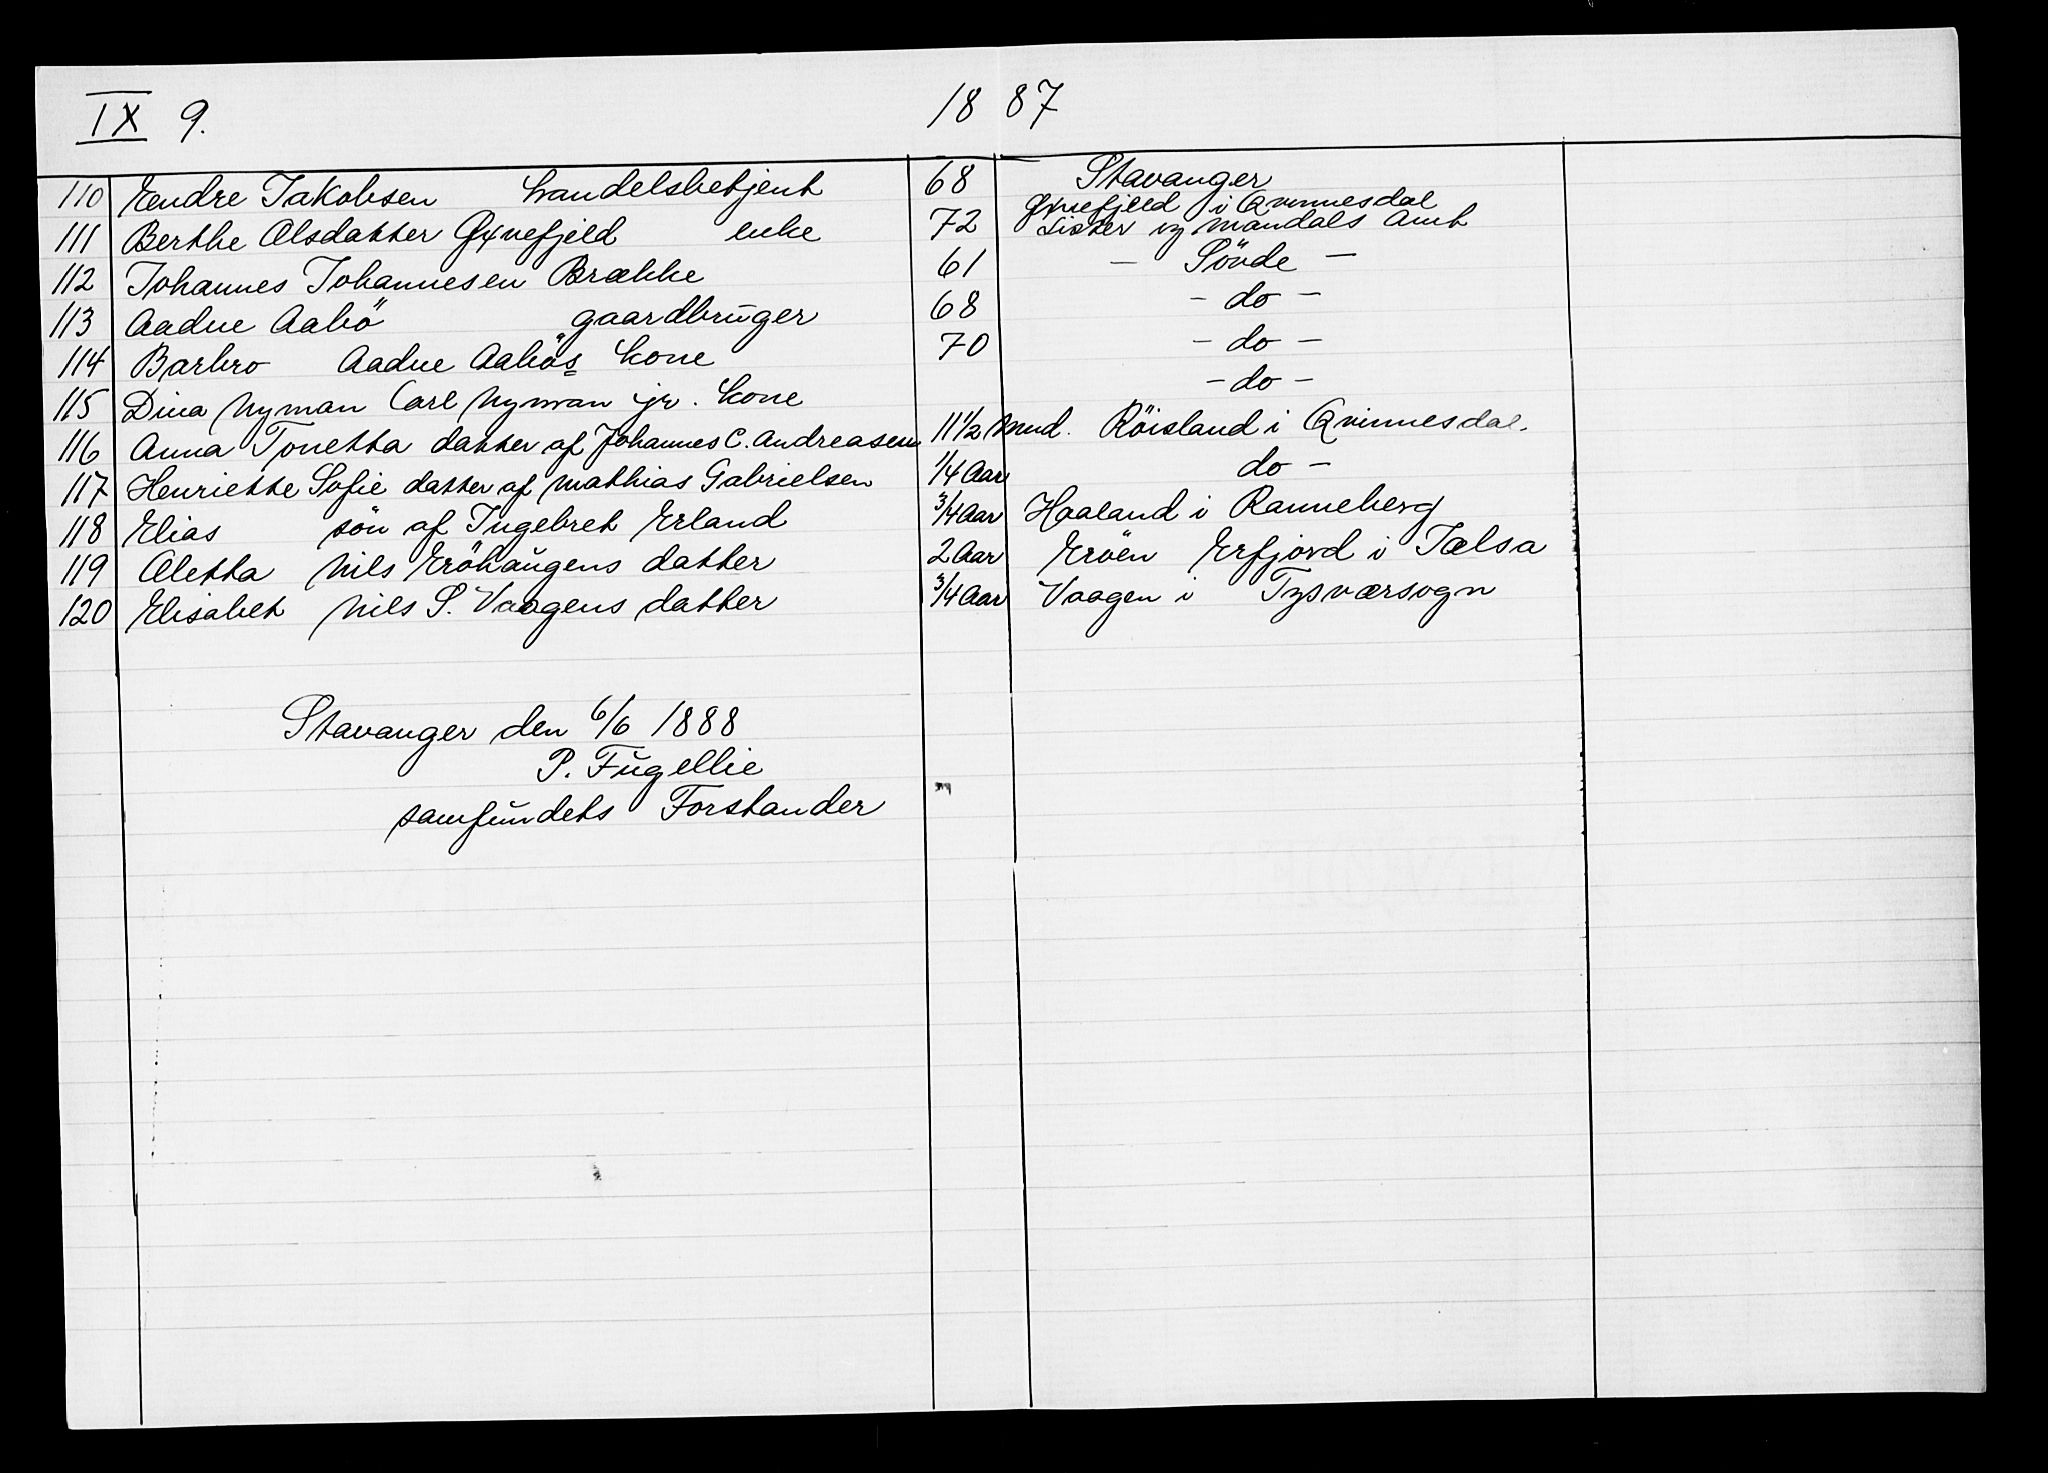 IX 9. 1887
110 Endre Jakobsen handelsbetjent 68 Stavanger
111 Berthe Olsdatter Gyuefjeld enke 72 Gyuefjeld i Qvinnesdal
Lister og Mandals Amt
112 Johannes Johannesen Brække 61 — Sövde —
113 Aadne Aabö gaardbruger 68 - do -
114 Barbro Aadne Aabös kone 70 - do -
115 Dina Nyman Carl Nyman jr. kone - do -
116 Anna Tonetta datter af Johannes C. Andreasen 11 1/2 Mnd. Röisland i Qvinnesdal
117 Henriette Sofie datter af Mathias Gabrielsen 1/4 Aar do -
118 Elias sön af Ingebret Erland 3/4 Aar Haaland i Ranneberg
119 Aletta Nils Eröhaugens datter 2 Aar Eröen Erfjord i Jælsa
120 Elisabet Nils S. Vaagens datter 3/4 Aar Vaagen i Tysværsogn
Stavanger den 6/6 1888
P. Fugellie
samfundets Forstander